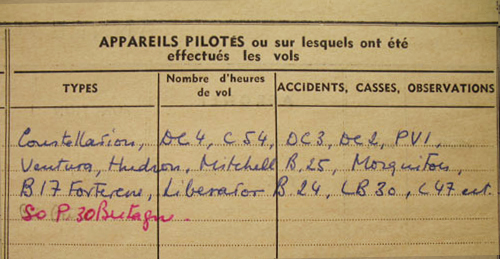 APPAREILS PILOTÉS ou sur lesquels ont été
effectués les vols
TYPES
Nombre d'heures
de vol
ACCIDENTS, CASSES, OBSERVATIONS
Constellation, DC4, C54, DC3, DC2, PV1
Ventura, Hudson, Mitchell B.25, Mosquitos,
B17 Forteresse, Liberator B.24, LB30, C47 ect.
So P. 30 Bretagn.